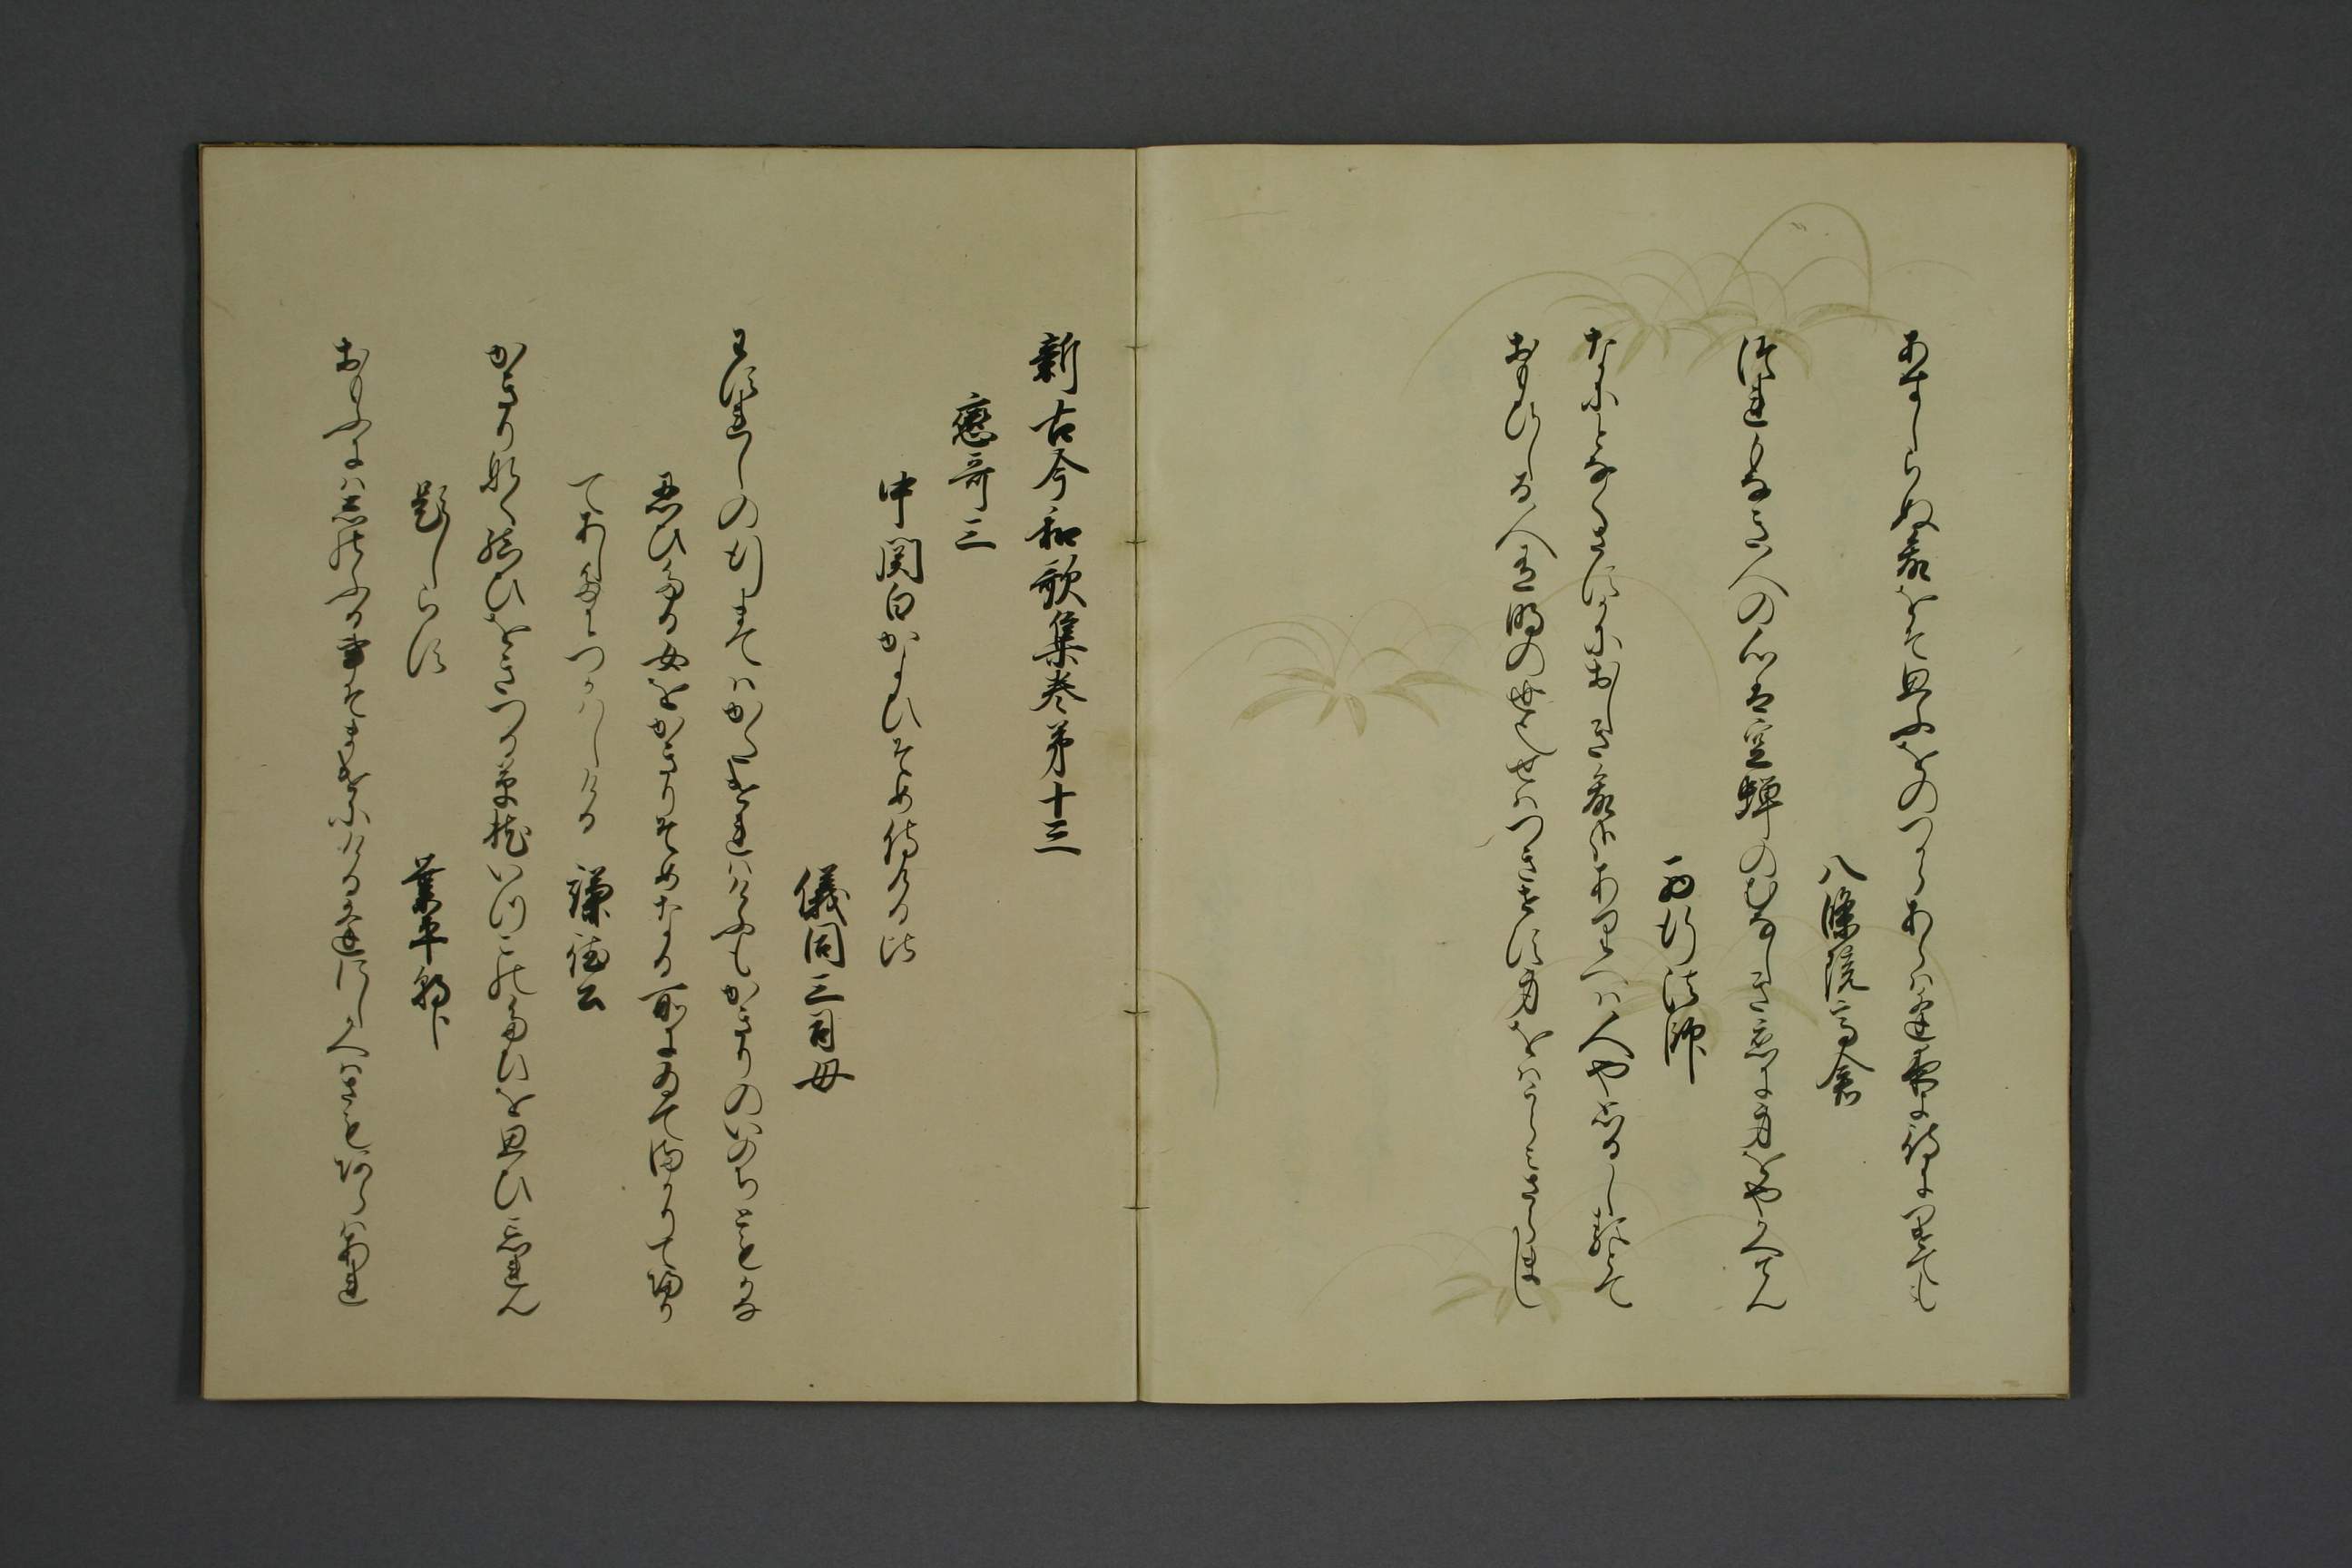 あすしらぬ命をそ思ふをのつからあらは逢夜を待につけても
八條院高倉
つれもなき人の心は空蝉のむなしき恋に身をやかへてん
西行法師
なにとなくさすかにおしき命かなありへは人や思ひしるとて
おもひしる人有明の世なりせはつきせす身をはうらみさらまし
新古今和歌集巻第十三
戀哥三
中関白かよひそめ侍ける比
儀同三司母
わすれしの行すゑまてはかたけれはけふをかきりのいのちともかな
忍ひたる女をかりそめなる所にゐてまかりて帰り
てあしたにつかはしける 謙徳公
かきりなく結ひをきつる草枕いつこのたひを思ひ忘れん
題しらす
業平朝臣
おもふには忍ふる事そまけにける逢にしかへはさもあらはあれ